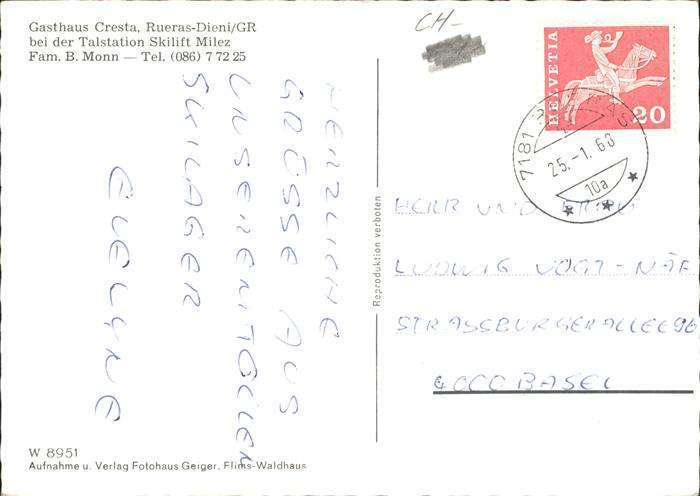 Gasthaus Cresta, Rueras-Dieni/GR
bei der Talstation Skilift Milez
Fam. B. Monn — Tel. (086) 7 72 25
CH-
HELVETIA
20
7181
25.-1.68
10a
HERZLICHE
GRÜSSE AUS
UNSEREM TOLLEN
SKILAGER
EVELYNE
Reproduktion verboten
HERR UND FRAU
LUDWIG VOGT-NÄF
STRASSBURGERALLEE 96
4000 BASEL
W 8951
Aufnahme u. Verlag Fotohaus Geiger, Flims-Waldhaus